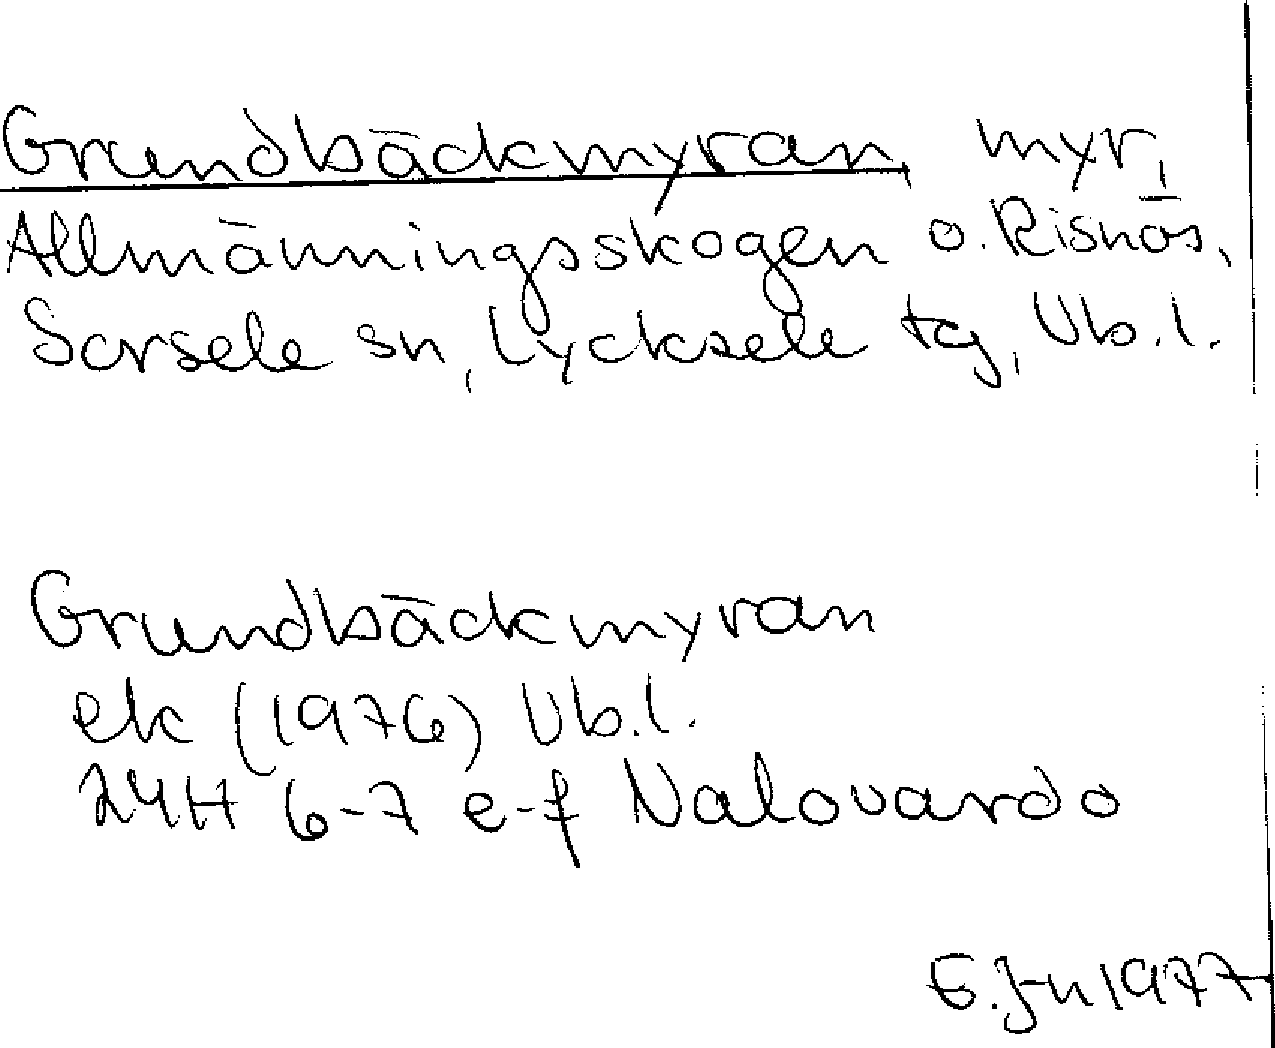 Grundbäckmyran, myr,
Allmänningsskogen o. Risnäs,
Sorsele sn, Lycksele tg, Vb.l.
Grundbäckmyran
ek (1976) Vb.l.
24H 6-7 e-f Nalovardo
G.Jn 1977